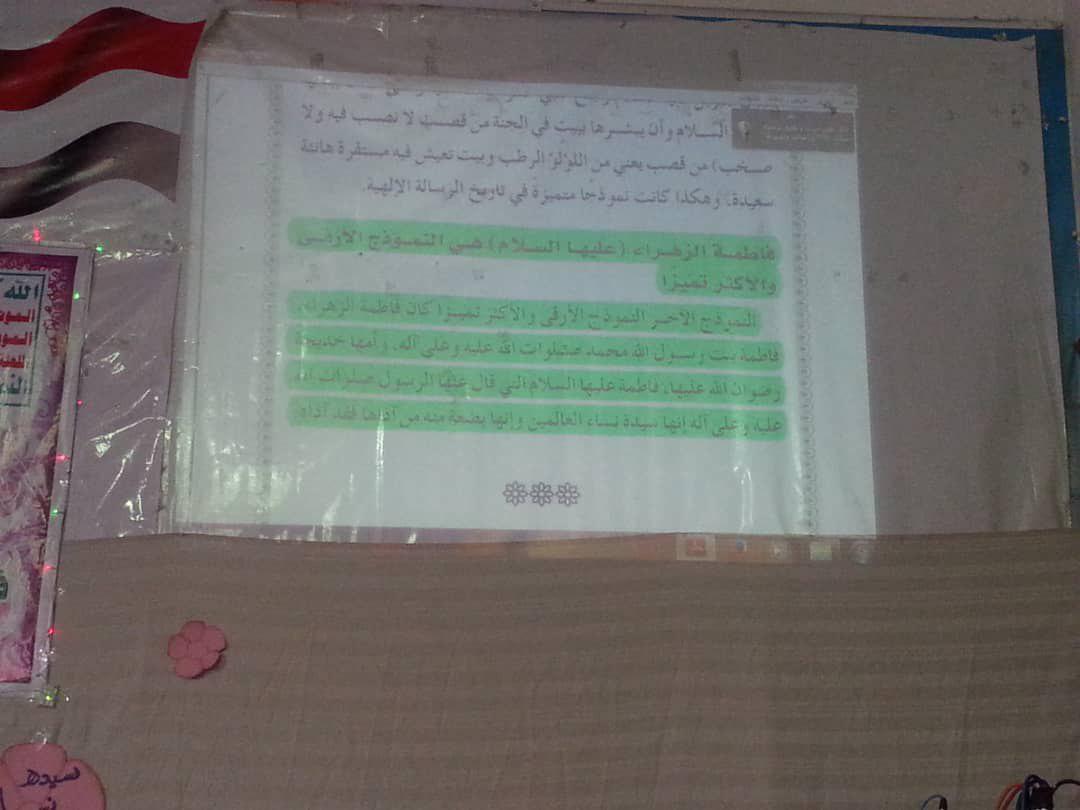 السلام وأن يبشرها ببيت في الجنة من قصب لا نصب فيه ولا
صخب) من قصب يعني من اللؤلؤ الرطب وبيت تعيش فيه مستقرة هانئة
سعيدة، وهكذا كانت نموذجا متميزة في تاريخ الرسالة الإلهية.
فاطمة الزهراء (عليها السلام) هي النموذج الأرقى
والأكثر تميزا
النموذج الآخر النموذج الأرقى والأكثر تميزا كان فاطمة الزهراء،
فاطمة بنت رسول الله محمد صلوات الله عليه وعلى آله، وأمها خديجة
رضوان الله عليها، فاطمة عليها السلام التي قال عنها الرسول صلوات الله
عليه وعلى آله إنها سيدة نساء العالمين وإنها بضعة منه من آذاها فقد آذاه
الله
سيدة